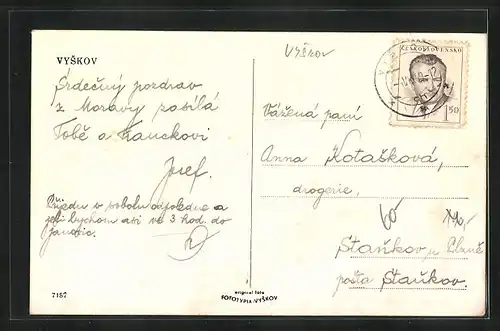 VYŠKOV
Srdečný pozdrav
z Moravy zasílá
Tobě a Hanckovi
Josef.
Přijedu v sobotu odpoledne a
jeli bychom asi ve 3 hod. do
Janovic.
7187
original foto
FOTOTYPIA-VYŠKOV
Vyškov
ČESKOSLOVENSKO
1.50
Vážená paní
Anna Kotašková,
drogerie,
60
Staňkov, u Plzně
pošta Staňkov.